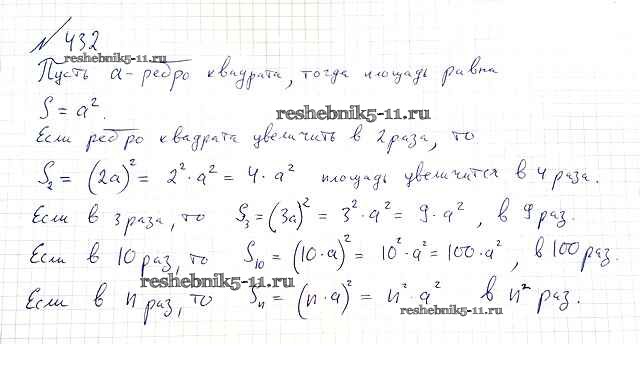 № 432
reshebnik5-11.ru
Пусть a - ребро квадрата, тогда площадь равна
S = a².
reshebnik5-11.ru
Если ребро квадрата увеличить в 2 раза, то
S₂ = (2a)² = 2²·a² = 4·a² площадь увеличится в 4 раза.
Если в 3 раза, то S₃ = (3a)² = 3²·a² = 9·a², в 9 раз.
Если в 10 раз, то S₁₀ = (10·a)² = 10²·a² = 100·a², в 100 раз.
reshebnik5-11.ru
Если в n раз, то Sₙ = (n·a)² = n²·a² в n² раз.
reshebnik5-11.ru